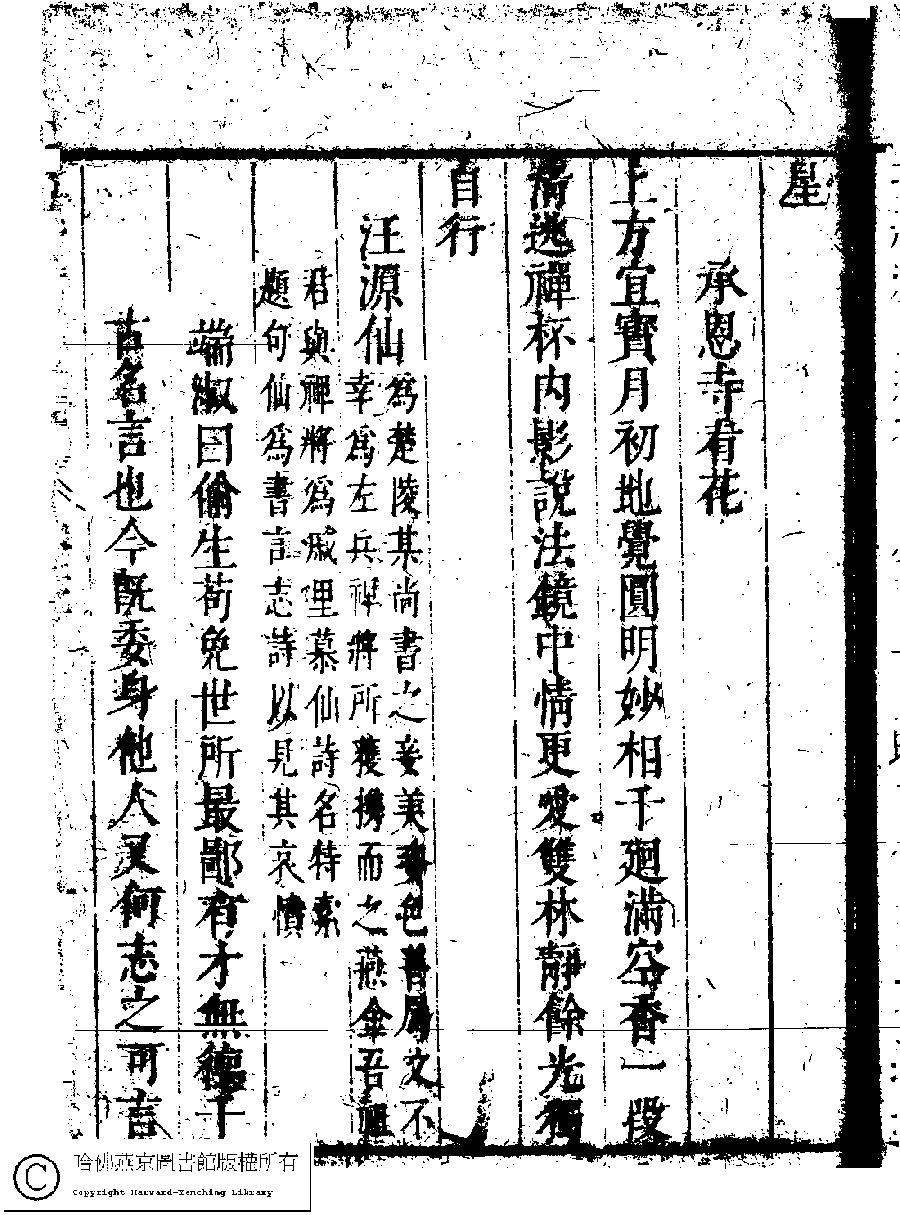 星
承恩寺看花
上方宜寶月初地覺圓明妙相千廻滿空香一段
清逃禪杯內影說法鏡中情更愛雙林靜餘光獨
自行
汪源仙
為楚陵某尚書之妾美姿色善屬文不
幸為左兵裨將所獲携而之燕金吾祖
君與裨將為戚里慕仙詩名特索
題句仙為書言志詩以見其哀憤
端淑曰偷生苟免世所最鄙有才無德千
古名言也今既委身他人又何志之可言
哈佛燕京圖書館版權所有
Copyright Harvard-Yenching Library